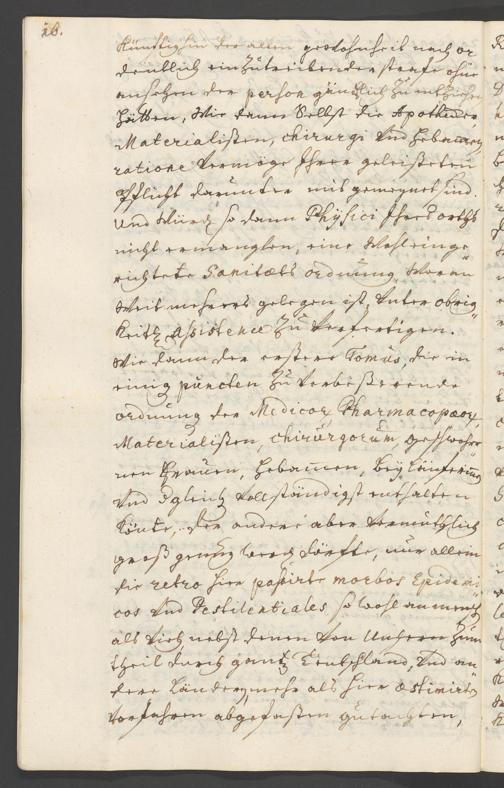 26.
Künfftighin der alten gewohnheit nach or
dentlich einzutreibender strafe ohne
ansehen der person gäntzlich zu entziehen
hätten, Wie dann Selbst die Apothecker
Materialisten, chirurgi und Hebammen
ratione vermöge Ihrer geleisteten
Pflicht darunter mit gemeynet sind.
Und würde so dann Physici Ihres orths
nicht ermanglen, eine Wohleinge
richtete Sanitæts ordnung, Woran
Weit mehrers gelegen ist, unter obrig
keitl. Assistence zu verfertigen.
Wie dann der erstere Tomus, die in
einig puncten zu verbeßerende
ordnung der Medicor. Pharmacopæor.
Materialisten, chirurgorum, geschwohr
nen Frauen, Hebammen, bey
und dgleich vollständigst enthalten
könte, der andere aber vermuthlich
groß genug werden dörffte, nur allein
die retro hier passirte morbos Epidemi
cos und Pestilentiales, so wohl an mensch
als Vieh nebst denen von Unseren zum
theil durch gantz Teutschland, und an
dere Länder mehr als hier æstimirten
Vorfahren abgefasten gutachten,